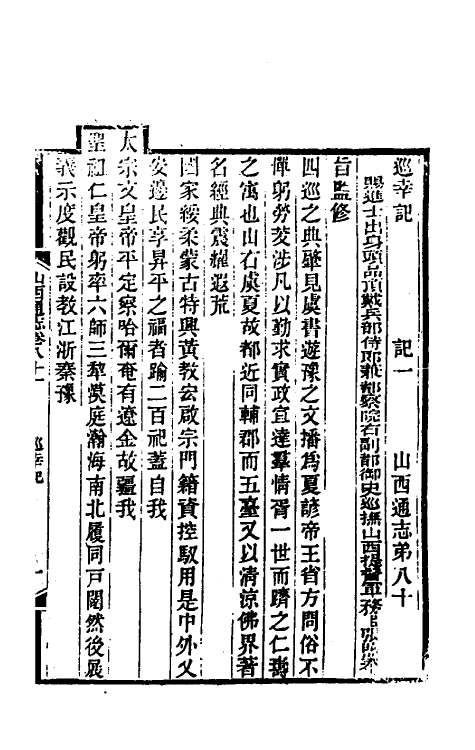 巡幸記 記一 山西通志第八十
賜進士出身頭品頂戴兵部侍郎兼都察院右副都御史巡撫山西提督軍務
旨監修
四巡之典肇見虞書遊豫之文播爲夏諺帝王省方問俗不
憚躬勞茇涉凡以勤求實政宣達羣情胥一世而躋之仁壽
之㝢也山右虞夏故都近同輔郡而五臺又以淸涼佛界著
名經典震耀遐荒
國家綏柔蒙古特興黃教宏啟宗門籍資控馭用是中外乂
安邊民享昇平之福者踰二百祀蓋自我
太宗文皇帝平定察哈爾奄有遼金故疆我
聖祖仁皇帝躬率六師三犂漠庭瀚海南北履同戸闥然後展
義示度觀民設教江浙秦豫
山西通志卷八十一 巡幸記 一